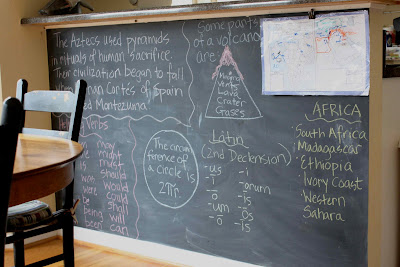 The Aztecs used pyramids
in rituals of human sacrifice.
Their civilization began to fall
when Hernan Cortés of Spain
Montezuma
Some parts
of a volcano
are
Magma
Vents
Lava
Crater
Gases
Verbs
may
might
must
should
would
could
shall
being will
been can
The circum
ference of
a circle is
2πr.
Latin
(2nd Declension)
-us -i
-i -orum
-o -is
-um -os
-o -is
AFRICA
South Africa
Madagascar
Ethiopia
Ivory Coast
Western
Sahara